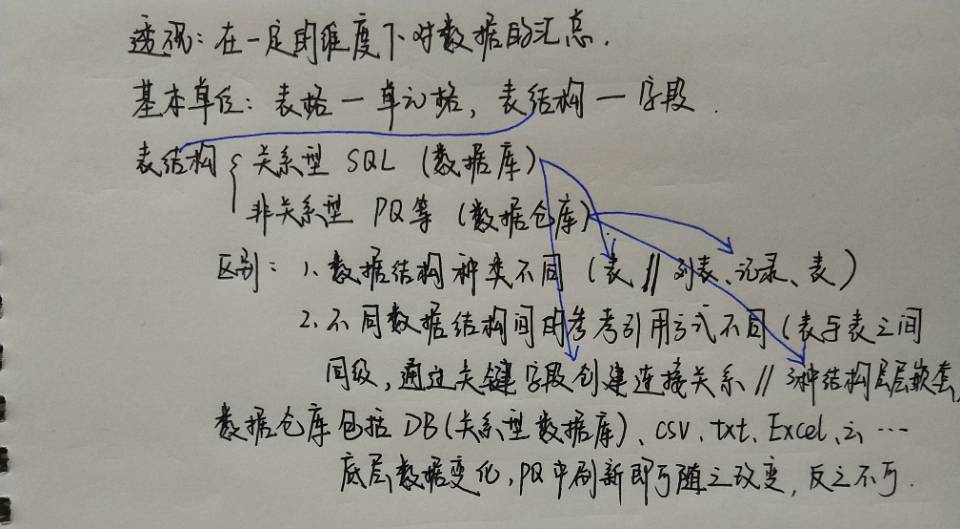 透视：在一定的维度下对数据的汇总.
基本单位：表格一单元格，表结构一字段.
表结构{关系型 SQL（数据库）
非关系型 PQ等（数据仓库）
区别：1、数据结构种类不同（表 // 列表、记录、表）
2、不同数据结构间的参考引用方式不同（表与表之间
同级，通过关键字段创建连接关系 // 3种结构层层嵌套,
数据仓库包括 DB(关系型数据库）、csv、txt、Excel、云、…
底层数据变化，PQ中刷新即可随之改变，反之不可.